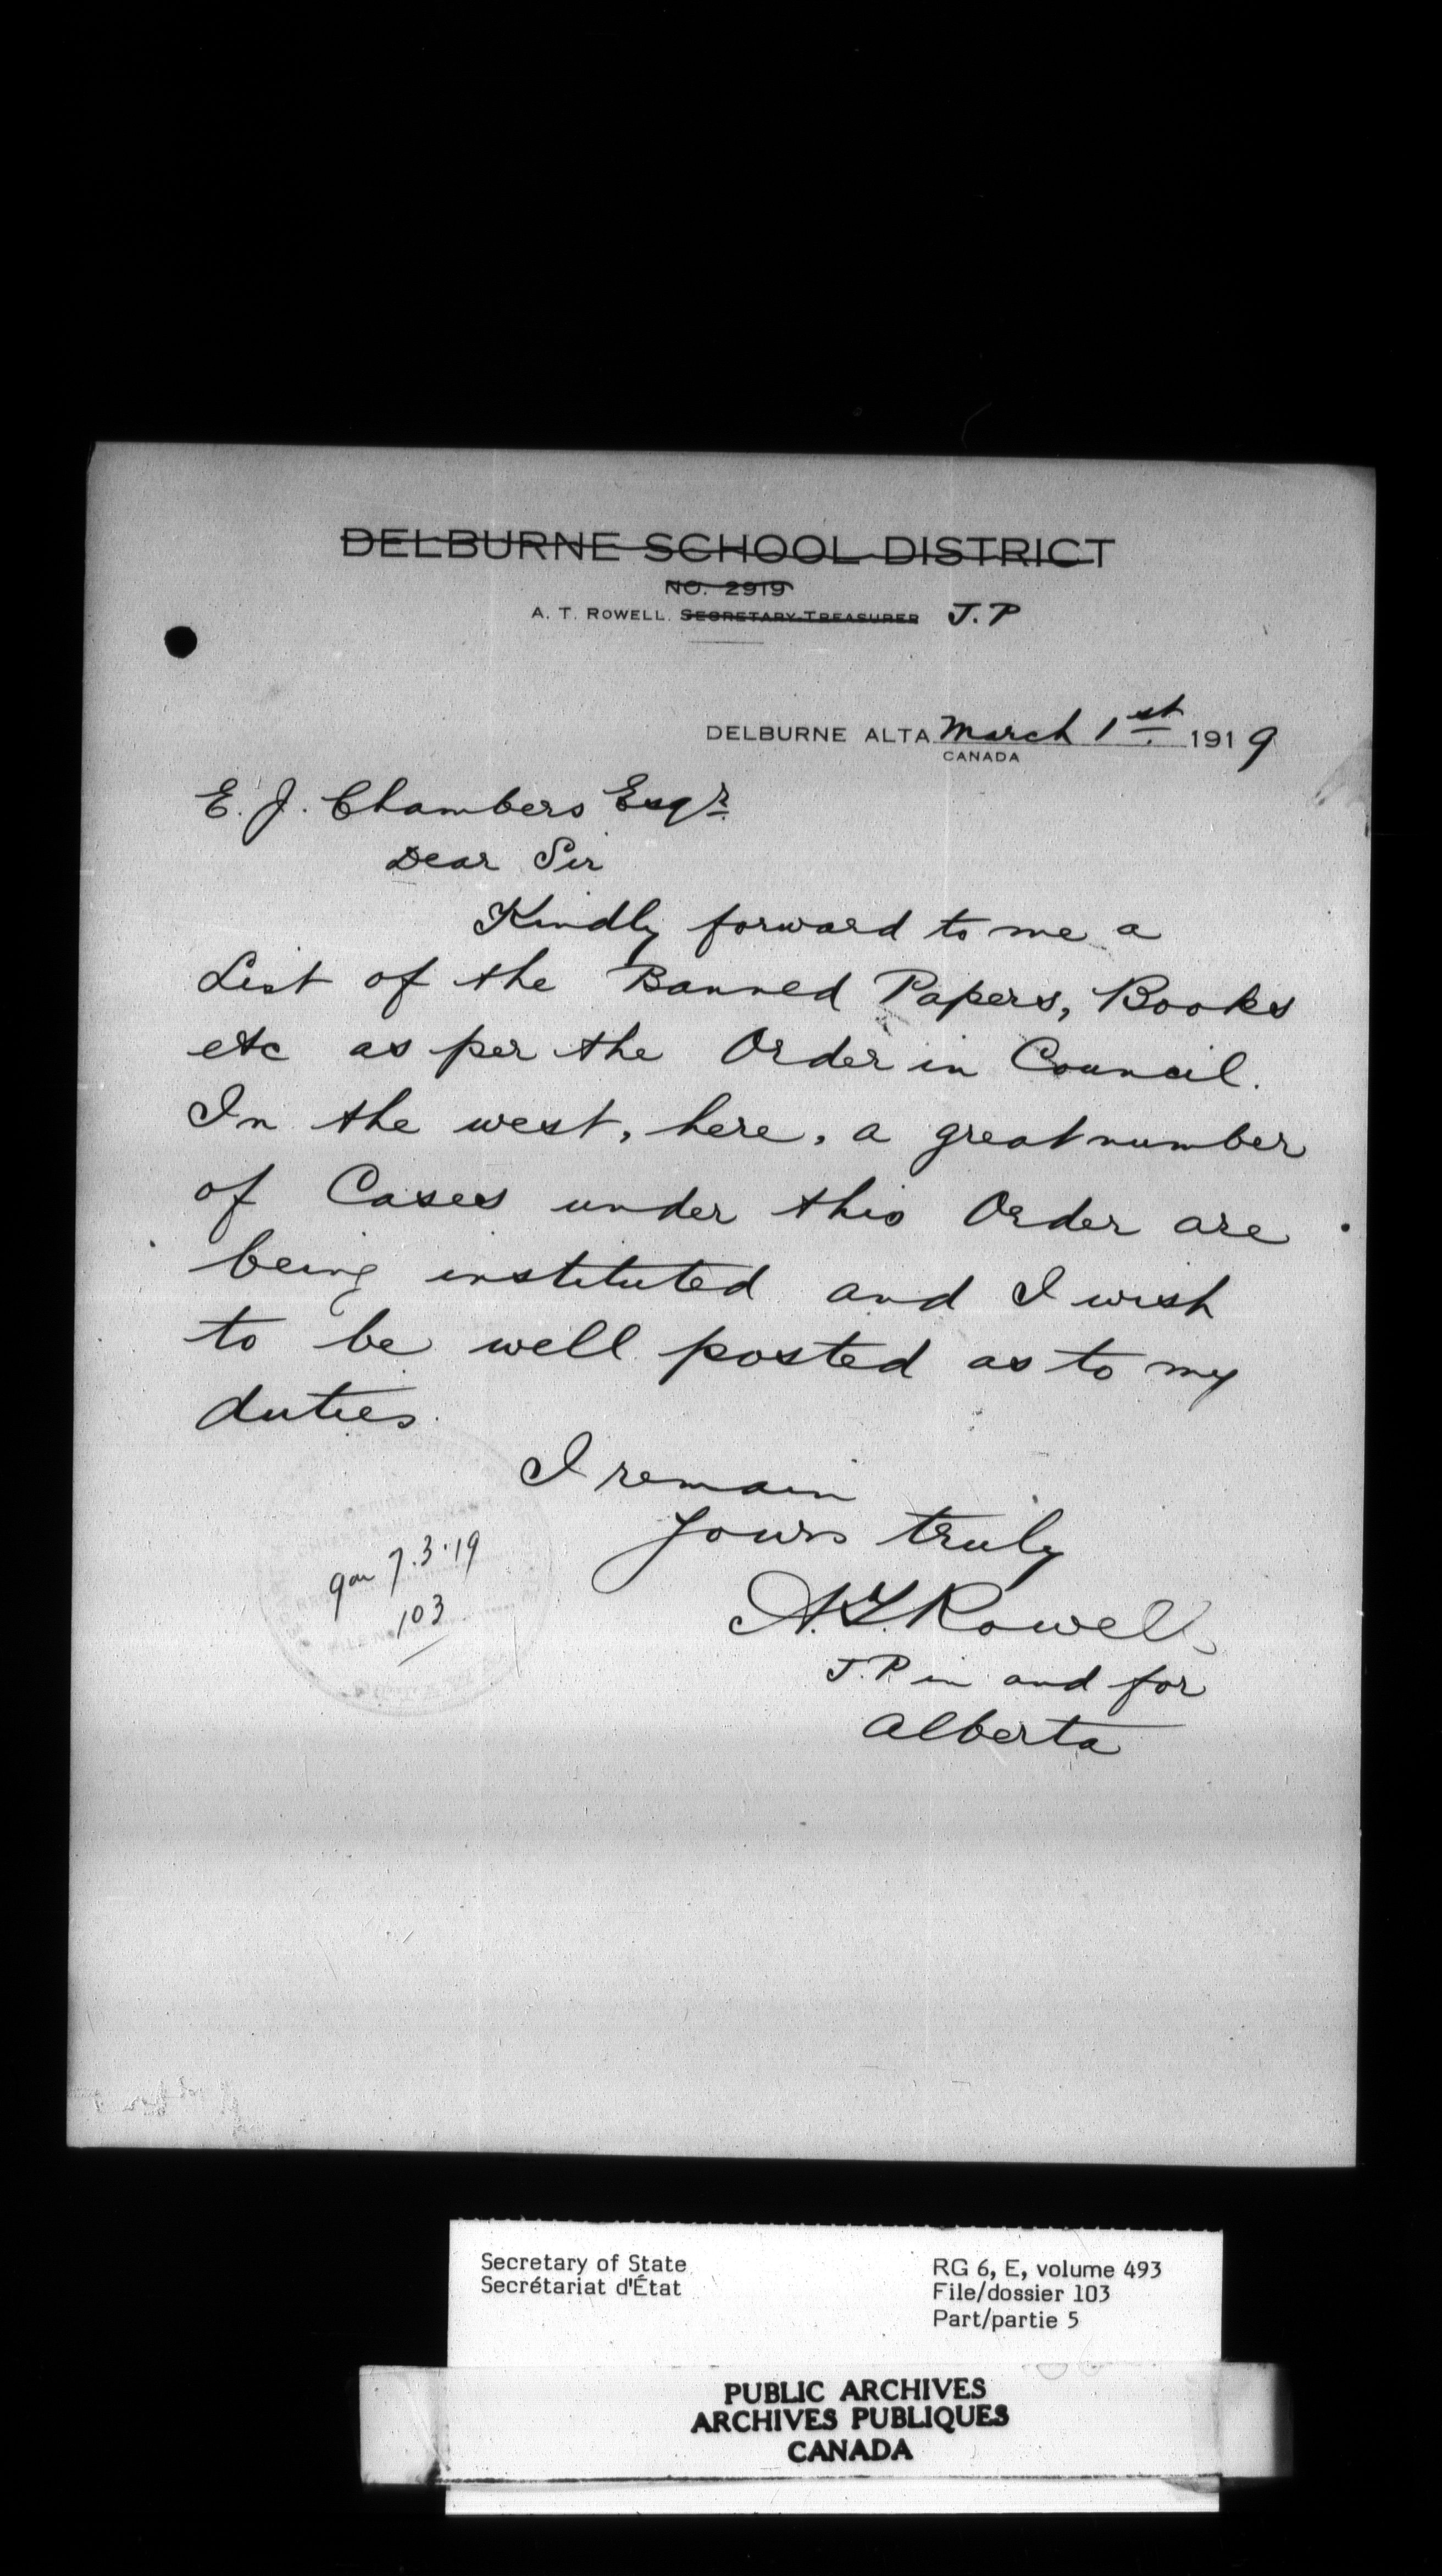 DELBURNE SCHOOL DISTRICT
NO. 2919
A. T. ROWELL. SECRETARY-TREASURER J. P
DELBURNE ALTA March 1st 1919
CANADA
E. J. Chambers Esqr.
Dear Sir
Kindly forward to me a
List of the Banned Papers, Books
etc as per the Order in Council.
In the west, here, a great number
of Cases under this Order are
being instituted and I wish
to be well posted as to my
duties.
I remain
Yours truly
A. T. Rowell
J. P. in and for
Alberta
7.3.19
103
Secretary of State
Secrétariat d'État
RG 6, E, volume 493
File/dossier 103
Part/partie 5
PUBLIC ARCHIVES
ARCHIVES PUBLIQUES
CANADA